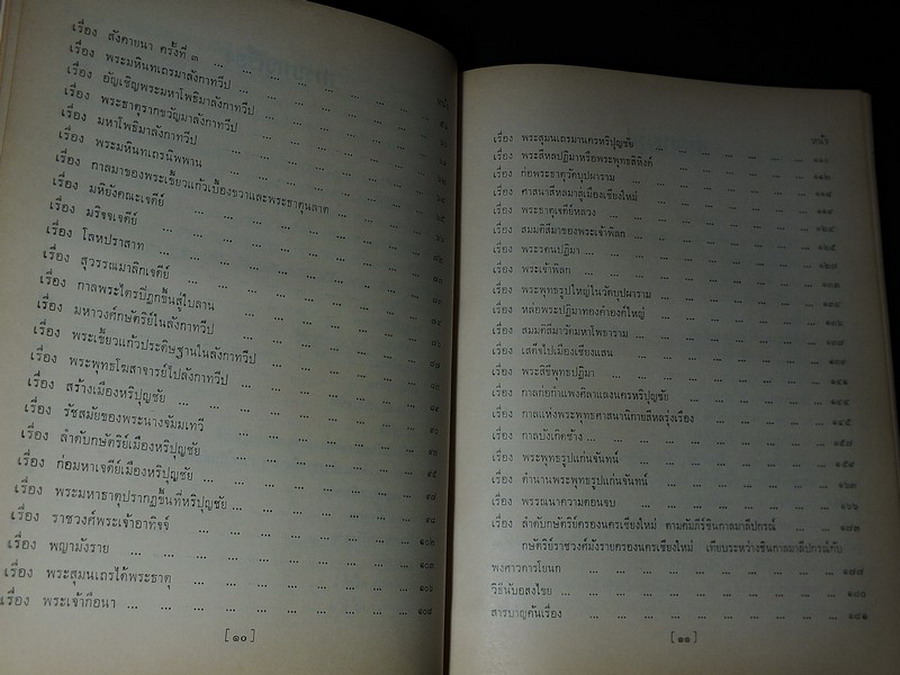 เรื่อง สังคายนา ครั้งที่ ๓ ... ... ...
หน้า
เรื่อง พระมหินทเถรมาลังกาทวีป ... ... ... ...
เรื่อง อัญเชิญพระมหาโพธิมาลังกาทวีป ... ... ...
เรื่อง พระธาตุรากขวัญมาลังกาทวีป ... ... ...
เรื่อง มหาโพธิมาลังกาทวีป ... ... ...
เรื่อง พระมหินทเถรนิพพาน ... ... ...
เรื่อง กาลมาของพระเขี้ยวแก้วเบื้องขวาและพระธาตุนลาต ...
เรื่อง มหิยังคณะเจดีย์ ... ... ...
เรื่อง มริจจเจดีย์ ... ... ...
เรื่อง โลหปราสาท ... ... ...
เรื่อง สุวรรณมาลิกเจดีย์ ... ... ...
เรื่อง กาลพระไตรปิฎกขึ้นสู่ใบลาน ... ... ...
เรื่อง มหาวงศ์กษัตริย์ในลังกาทวีป ... ... ...
เรื่อง พระเขี้ยวแก้วประดิษฐานในลังกาทวีป ... ...
เรื่อง พระพุทธโฆสาจารย์ไปลังกาทวีป ... ... ...
เรื่อง สร้างเมืองหริปุญชัย ... ... ...
เรื่อง รัชสมัยของพระนางจัมมเทวี ... ... ...
เรื่อง ลำดับกษัตริย์เมืองหริปุญชัย ... ... ...
เรื่อง ก่อมหาเจดีย์เมืองหริปุญชัย ... ... ...
เรื่อง พระมหาธาตุปรากฏขึ้นที่หริปุญชัย ... ... ...
เรื่อง ราชวงศ์พระเจ้าอาทิจจ์ ... ... ... ๑๐๒
เรื่อง พญามังราย ... ... ... ๑๐๓
เรื่อง พระสุมนเถรได้พระธาตุ ... ... ... ๑๐๖
เรื่อง พระเจ้ากือนา ... ... ... ๑๐๘
[ ๑๐ ]
หน้า
เรื่อง พระสุมนเถรมานครหริปุญชัย ... ... ... ๑๑๐
เรื่อง พระสีหลปฏิมาหรือพระพุทธสิหิงค์ ... ... ... ๑๑๒
เรื่อง ก่อพระธาตุวัดบุปผาราม ... ... ...
เรื่อง ศาสนาสีหลมาสู่เมืองเชียงใหม่ ... ... ...
เรื่อง พระธาตุเจดีย์หลวง ... ... ... ๑๒๔
เรื่อง สมมติสีมาของพระเจ้าพิลก ... ... ... ๑๒๕
เรื่อง พระรตนปฏิมา ... ... ... ๑๒๗
เรื่อง พระเจ้าพิลก ... ... ... ๑๓๓
เรื่อง พระพุทธรูปใหญ่ในวัดบุปผาราม ... ... ...
เรื่อง หล่อพระปฏิมาทองคำองค์ใหญ่ ... ... ... ๑๓๖
เรื่อง สมมติสีมาวัดมหาโพธาราม ... ... ... ๑๓๗
เรื่อง เสด็จไปเมืองเชียงแสน ... ... ...
เรื่อง พระสิขีพุทธปฏิมา ... ... ... ๑๔๑
เรื่อง กาลก่อกำแพงศิลาแลงนครหริปุญชัย ... ... ... ๑๔๔
เรื่อง กาลแห่งพระพุทธศาสนานิกายสีหลรุ่งเรือง ... ... ๑๔๕
เรื่อง กาลบังเกิดช้าง ... ... ... ๑๕๗
เรื่อง พระพุทธรูปแก่นจันทน์ ... ... ... ๑๕๘
เรื่อง ตำนานพระพุทธรูปแก่นจันทน์ ... ... ... ๑๖๓
เรื่อง พรรณนาความตอนจบ ... ... ... ๑๖๖
เรื่อง ลำดับกษัตริย์ครองนครเชียงใหม่ ตามคัมภีร์ชินกาลมาลีปกรณ์ ... ... ๑๗๓
กษัตริย์ราชวงศ์มังรายครองนครเชียงใหม่ เทียบระหว่างชินกาลมาลีปกรณ์กับ
พงศาวดารโยนก ... ... ... ๑๗๗
วิธีนับอสงไขย ... ... ... ๑๘๐
สารบาญค้นเรื่อง ... ... ... ๑๘๑
[ ๑๑ ]